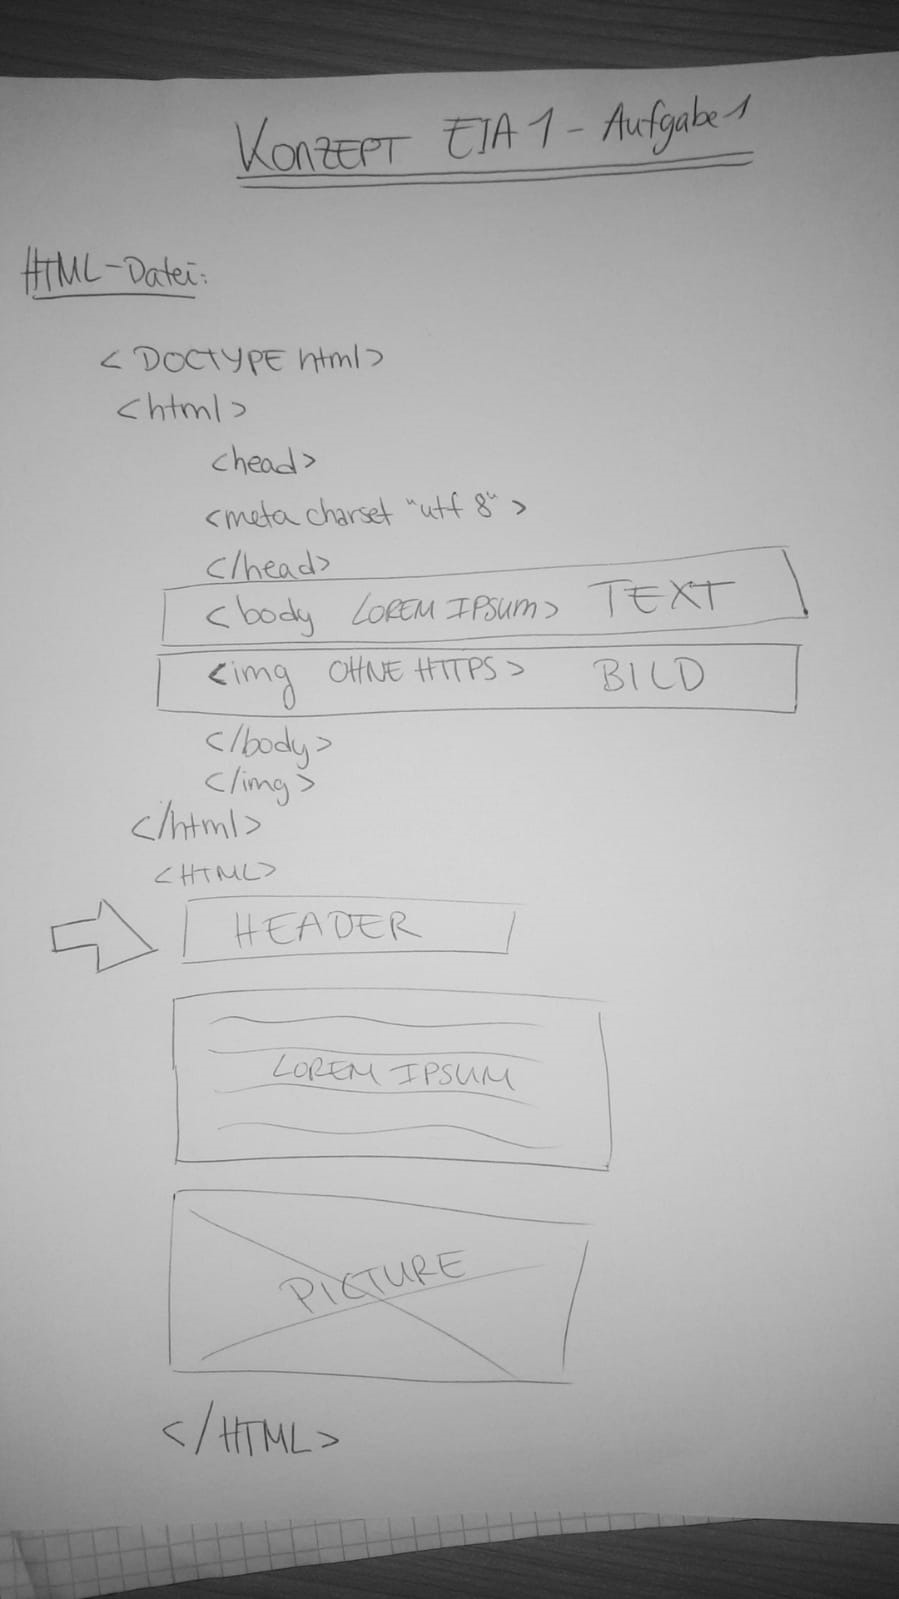 KONZEPT EIA 1 - Aufgabe 1
HTML-Datei:
< DOCTYPE html>
<html>
<head>
<meta charset "utf 8" >
</head>
<body LOREM IPSUM> TEXT
<img OHNE HTTPS> BILD
</body>
</img>
</html>
<HTML>
HEADER
LOREM IPSUM
PICTURE
</HTML>